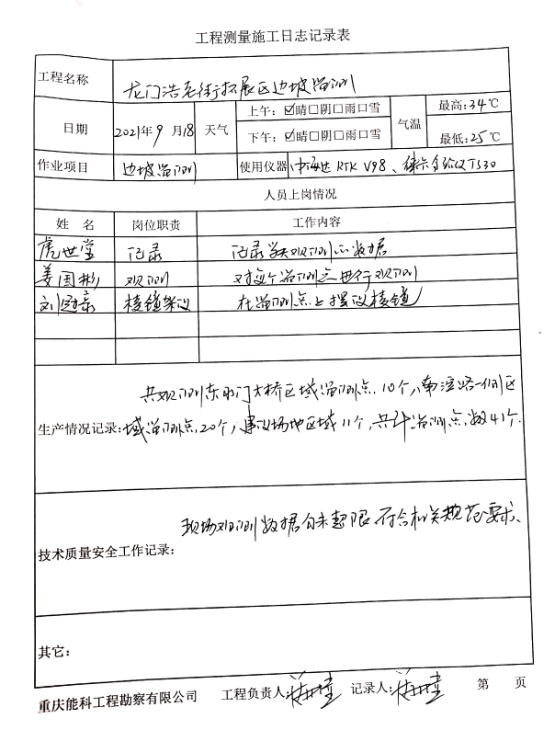 工程测量施工日志记录表
工程名称 龙门浩老街拓展区边坡监测
日期 2021年9月18 天气 上午：☑晴☐阴☐雨☐雪 气温 最高：34℃
下午：☑晴☐阴☐雨☐雪 最低：25℃
作业项目 边坡监测 使用仪器 中海达 RTK V98、 全站仪TS30
人员上岗情况
姓 名 岗位职责 工作内容
庞世堂 记录 记录 观测的数据
姜国彬 观测 对每个监测点进行观测
刘 棱镜架设 在监测点上摆设棱镜
生产情况记录：共观测东水门大桥区域监测点10个，南滨路一侧区
域监测点20个，建设场地区域11个，共计监测点数41个.
技术质量安全工作记录：现场观测数据均未超限，符合相关规范要求.
其它：
重庆能科工程勘察有限公司 工程负责人： 记录人： 第 页